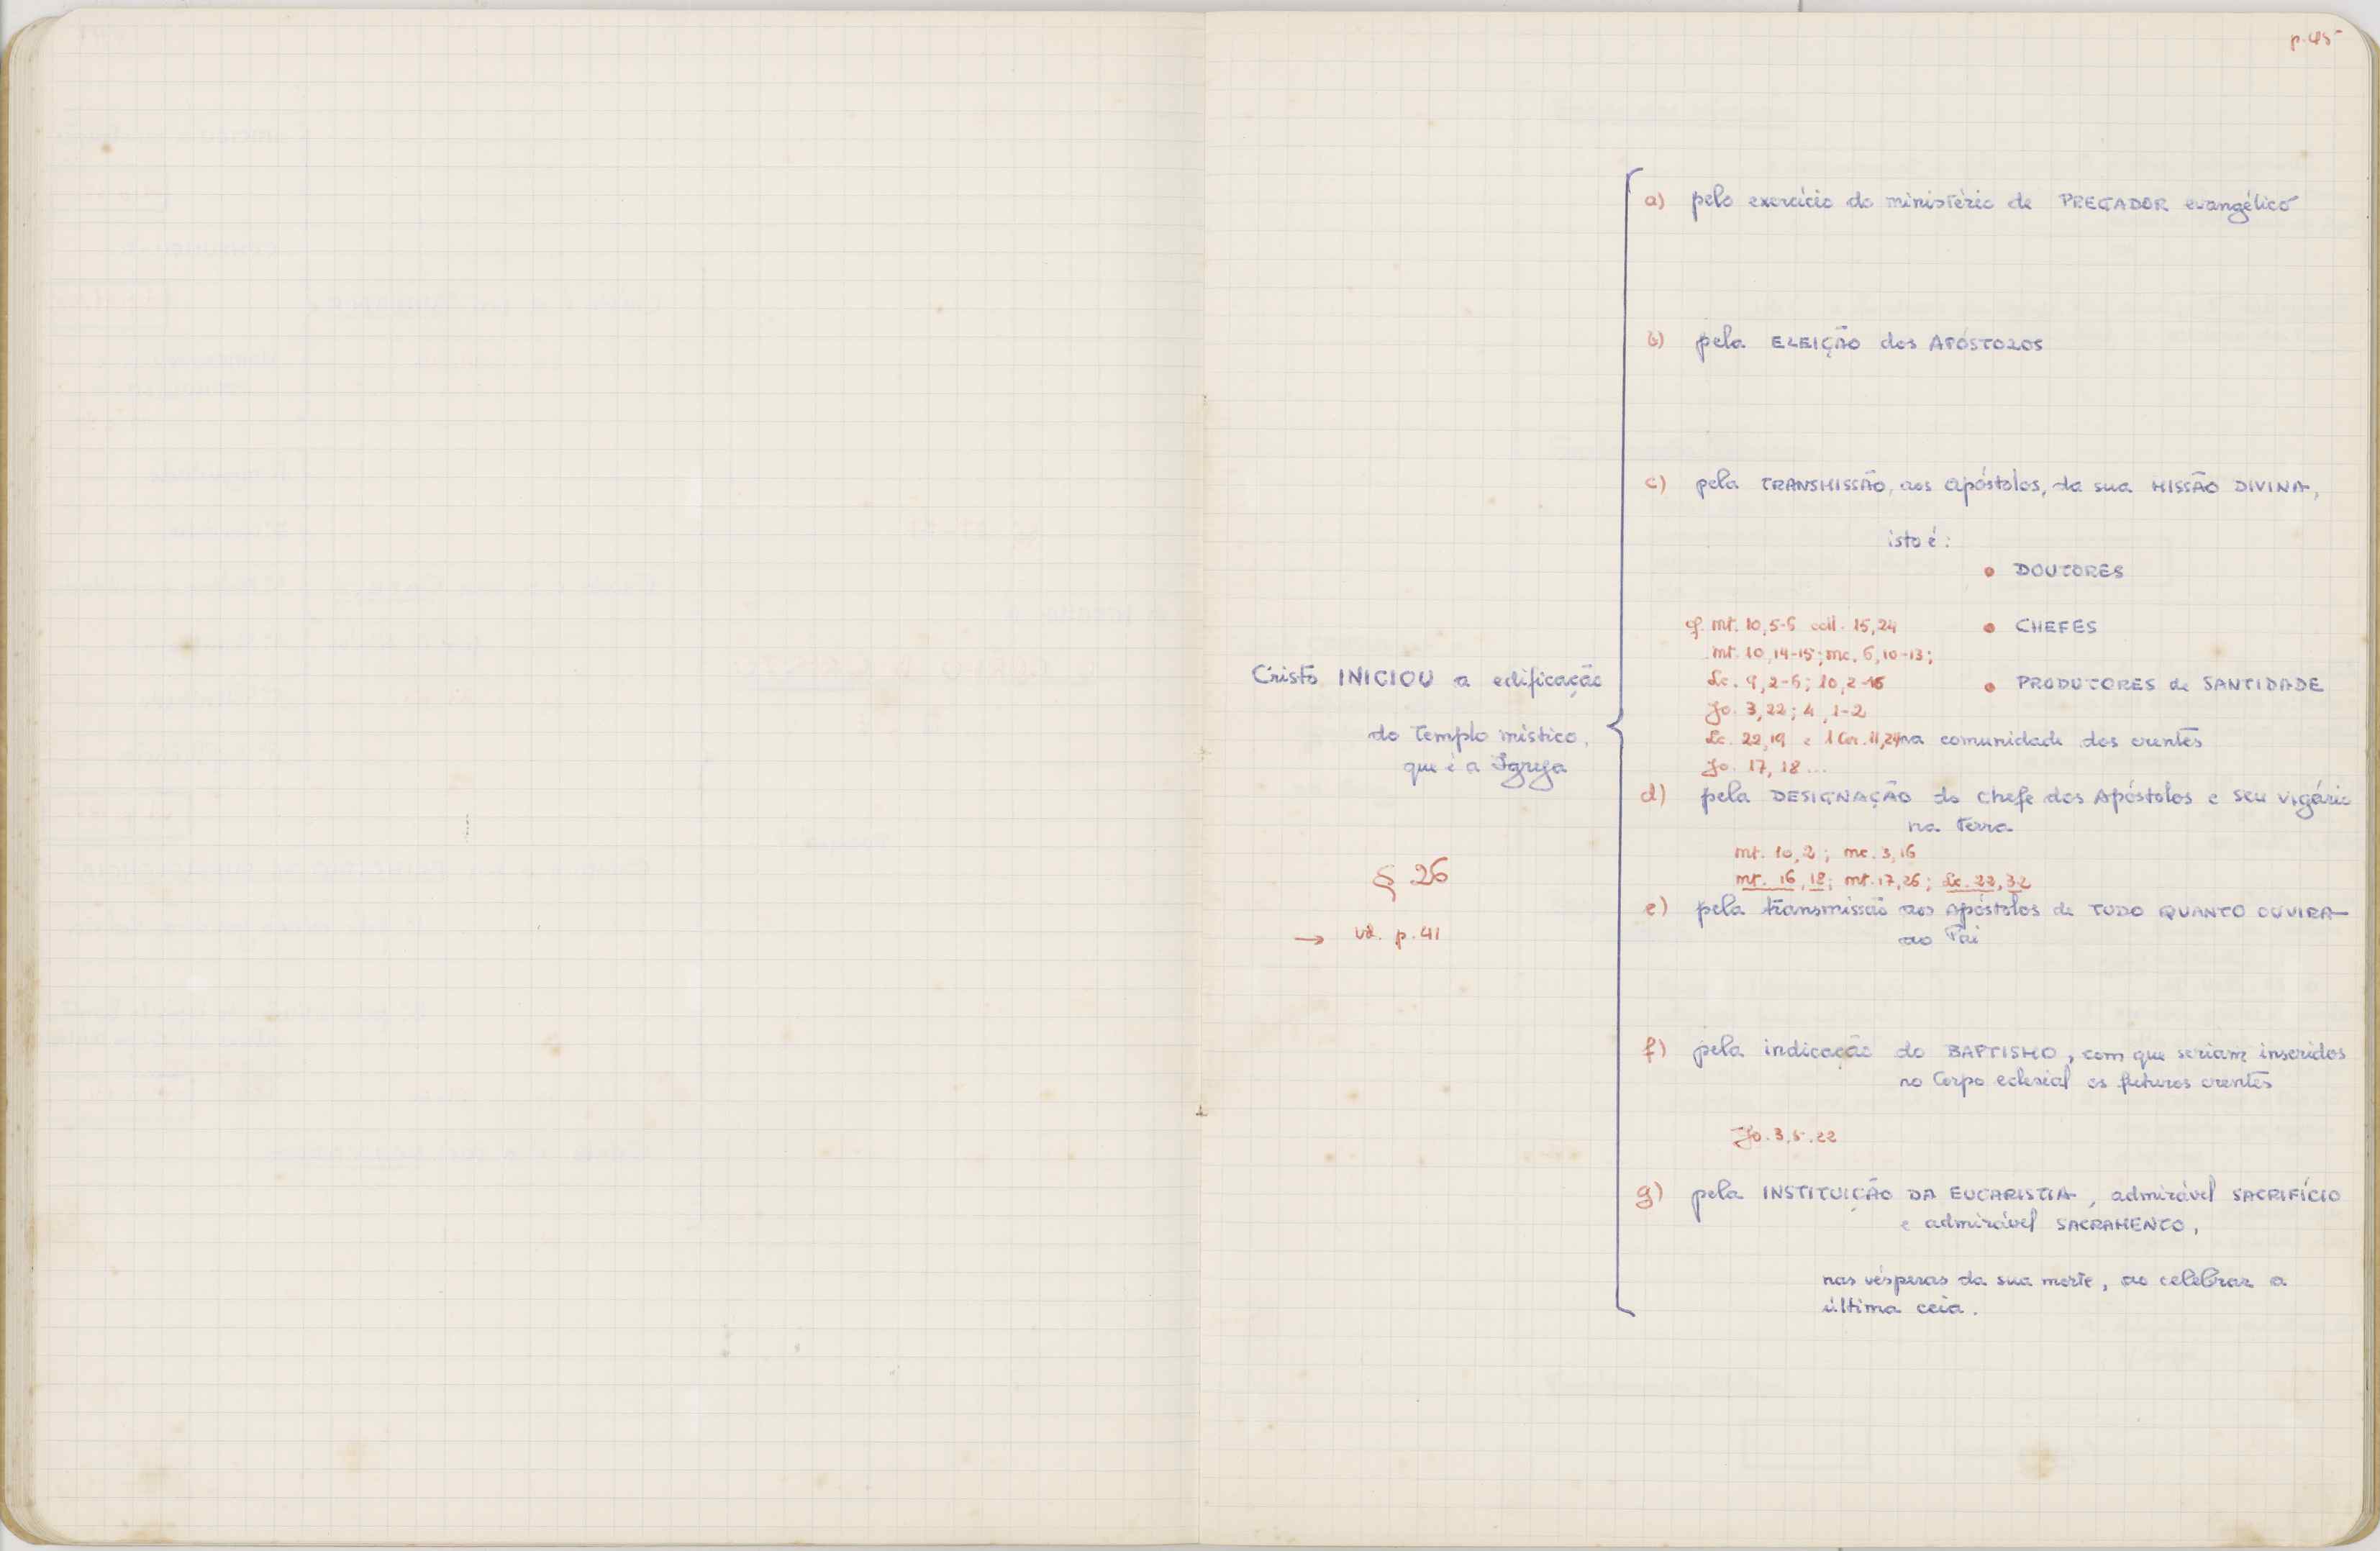 p. 45
a) pelo exercício do ministério de PREGADOR evangélico
b) pela ELEIÇÃO dos APÓSTOLOS
c) pela TRANSMISSÃO, aos Apóstolos, da sua MISSÃO DIVINA,
isto é:
• DOUTORES
cf. Mt. 10, 5-6 coll. 15,24
• CHEFES
Mt. 10,14-15; Mc. 6,10-13;
Lc. 9,2-6; 10,2-16
• PRODUTORES de SANTIDADE
Jo. 3,22; 4,1-2
Lc. 22,19 e 1 Cor. 11,24
na comunidade dos crentes
Jo. 17, 18...
Cristo INICIOU a edificação
do Templo místico,
que é a Igreja
§ 26
→ vd. p. 41
d) pela DESIGNAÇÃO do Chefe dos Apóstolos e seu vigário
na terra
Mt. 10,2; Mc. 3,16
Mt. 16,18; Mt. 17,26; Lc. 22,32
e) pela transmissão aos Apóstolos de TUDO QUANTO OUVIRA
ao Pai
f) pela indicação do BAPTISMO, com que seriam inseridos
no Corpo eclesial os futuros crentes
Jo. 3,5.22
g) pela INSTITUIÇÃO DA EUCARISTIA, admirável SACRIFÍCIO
e admirável SACRAMENTO,
nas vésperas da sua morte, ao celebrar a
última ceia.